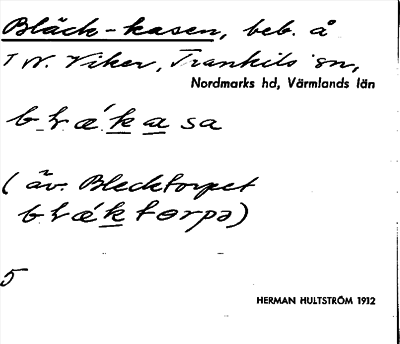 Bläck-kasen, beb. å
T N. Viker, Trankils sn,
Nordmarks hd, Värmlands län
blǽkasa
(äv. Blecktorpet
blǽktorpə)
5
HERMAN HULTSTRÖM 1912